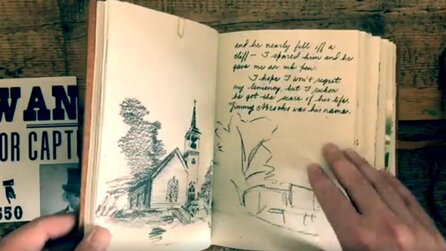 and he nearly fell off a
cliff – I spared him and he
gave me an ink pen.
I hope I won't regret
my leniency, but I reckon
he got the scare of his life.
Jimmy Brooks was his name.
WAN
OR CAPT